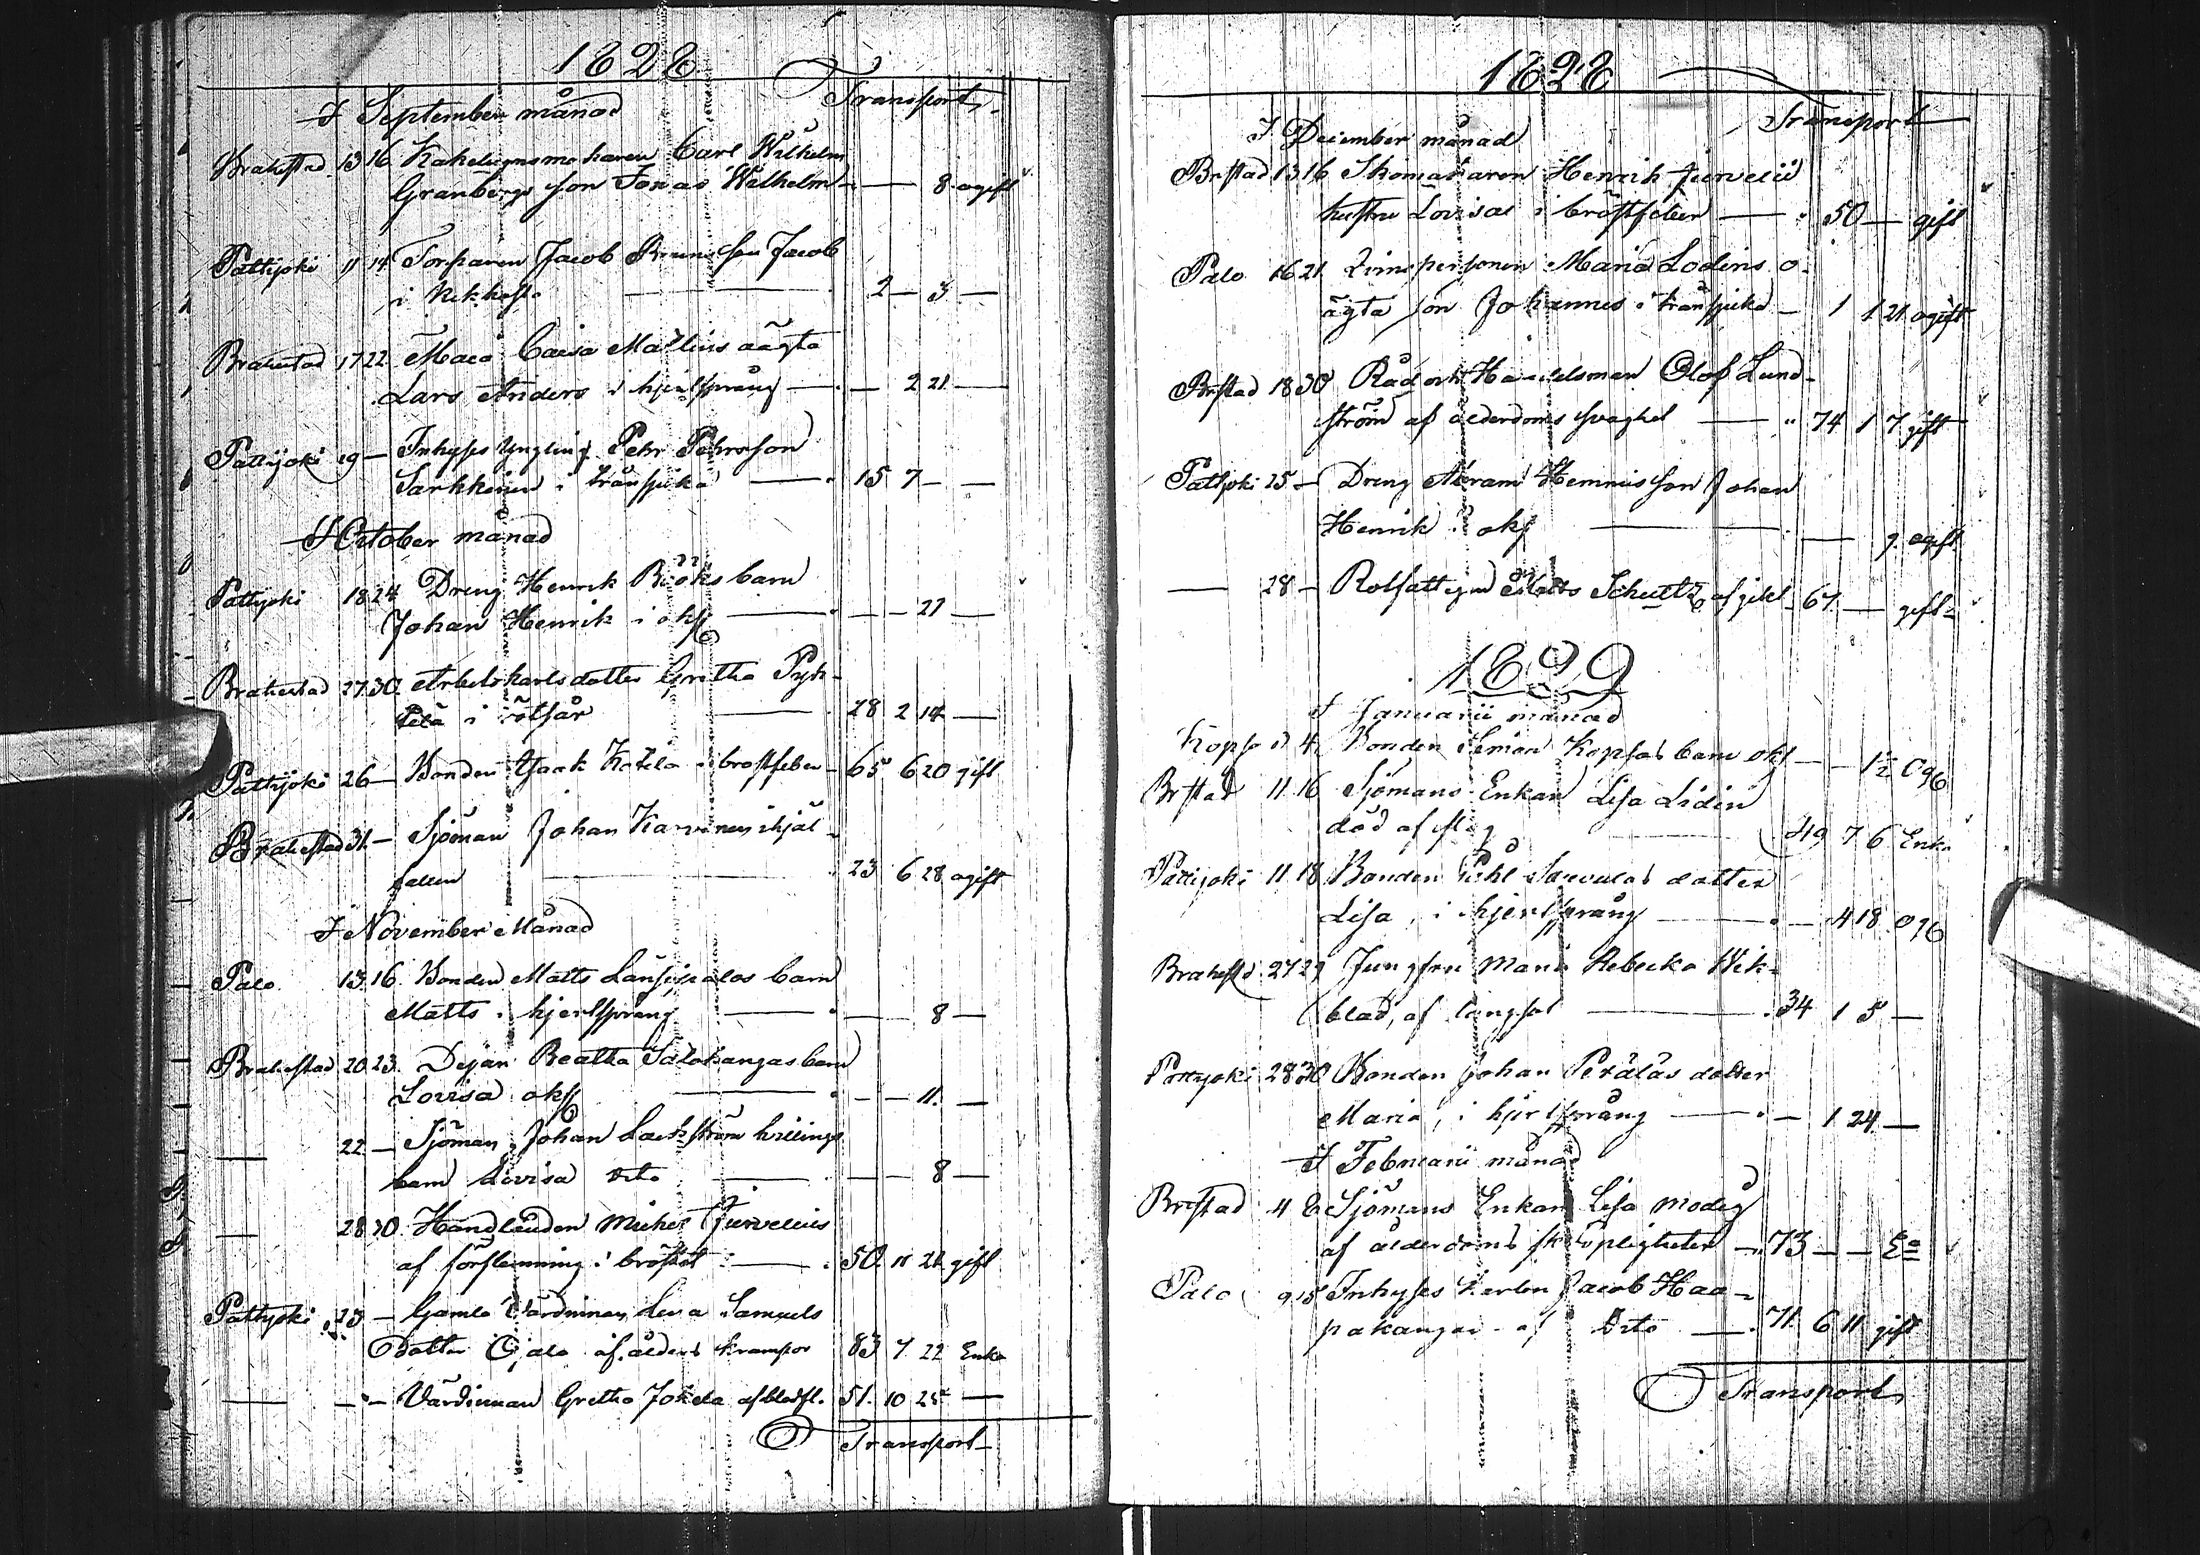 1828
Transport
I September månad
Brahestad 13 16 Kakelugnsmakaren Carl Wilhelm
Granbergs son Jonas Wilhelm — — 8 ogift
Pattijoki 11 14 Torparen Jacob son Jacob
i — 2 — 3 —
Brahestad 17 22 Caisa Mallins oägta
Lars Anders i hjertsprång — — 2 21 —
Pattijoki 19 — Inhyses Ynglin Pehr Pehrsson
Sarkkinen i tränsjuka — 15 7 — —
I October månad
Pattijoki 18 24 Dreng Henrik Bööks barn
Johan Henrik i okj — — — 21 —
Brahestad 27 30 Arbetskarls dotter Gretha Pyh-
i rötsår — 28 2 14 —
Pattijoki 26 — Bonden Isaak i bröstfeber — 65 6 20 gift
Brahestad 31 — Sjöman Johan Karvinen ihjäl-
fallen — 23 6 28 ogift
I November Månad
Palo 13 16 Bonden Matts barn
Matts i hjertsprång — — — 8 —
Brahestad 20 23 Dejan Beatha Salokangas barn
Lovisa okj — — — 11 —
— 22 — Sjöman Johan tvillings
barn Lovisa Dito — — — 8 —
— 28 30 Handlanden Michel Jurvelius
af förslemning i bröstet — 50 11 21 gift
Pattijoki 23 — Gamla Värdinnan Lena Samuels
Dotter Ojala af ålders krampor 83 7 22 Enka
— — — Värdinnan Gretha Jokela af blodfl. 51 10 25 —
Transport
1828
Transport
I December månad
Brstad 13 16 Skomakaren Henrik Jurvelii
hustru Lovisa i bröstfeber — 50 — gift
Palo 16 21 Maria Lodens o-
ägta son Johannes i tränsjuka — 1 1 21 ogift
Brstad 18 30 Råd och Handelsman Olof Lund-
ström af ålderdoms svaghet — 74 1 7 gift
Pattjoki 25 — Dreng Abram Hemmis son Johan
Henrik i okj — — 9 ogift
— 28 — Rotfattigen Matts Schultz af gikt 67 — gift
1829
I Januarii månad
Kopsa 4 Bonden Simon Kopsas barn okj — — 1½ Ogb
Brstad 11 16 Sjömans Enkan Lisa Lidin
död af slag — 49 7 6 Enka
Pattijoki 11 18 Bonden dotter
Lisa, i hjertsprång — — 4 18 Ogb
Brahestd 27 29 Jungfru Maria Rebecka Wik-
blad, af långsot — 34 1 5 —
Pattijoki 28 30 Bonden Johan Peräläs dotter
Maria, i hjertsprång — — 1 24 —
I Februarii månad
Brstad 4 8 Sjömans Enkan Lisa Modig
af ålderdoms skröpligheter — 73 — — Ea
Palo 9 15 Inhyses Karlen Jacob Haa-
pakangas af Dito — 71 6 11 gift
Transport